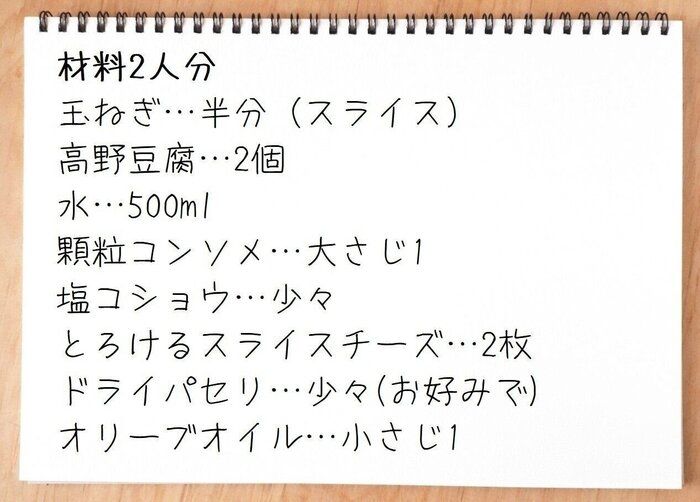 材料2人分
玉ねぎ…半分（スライス）
高野豆腐…2個
水…500ml
顆粒コンソメ…大さじ1
塩コショウ…少々
とろけるスライスチーズ…2枚
ドライパセリ…少々(お好みで)
オリーブオイル…小さじ1